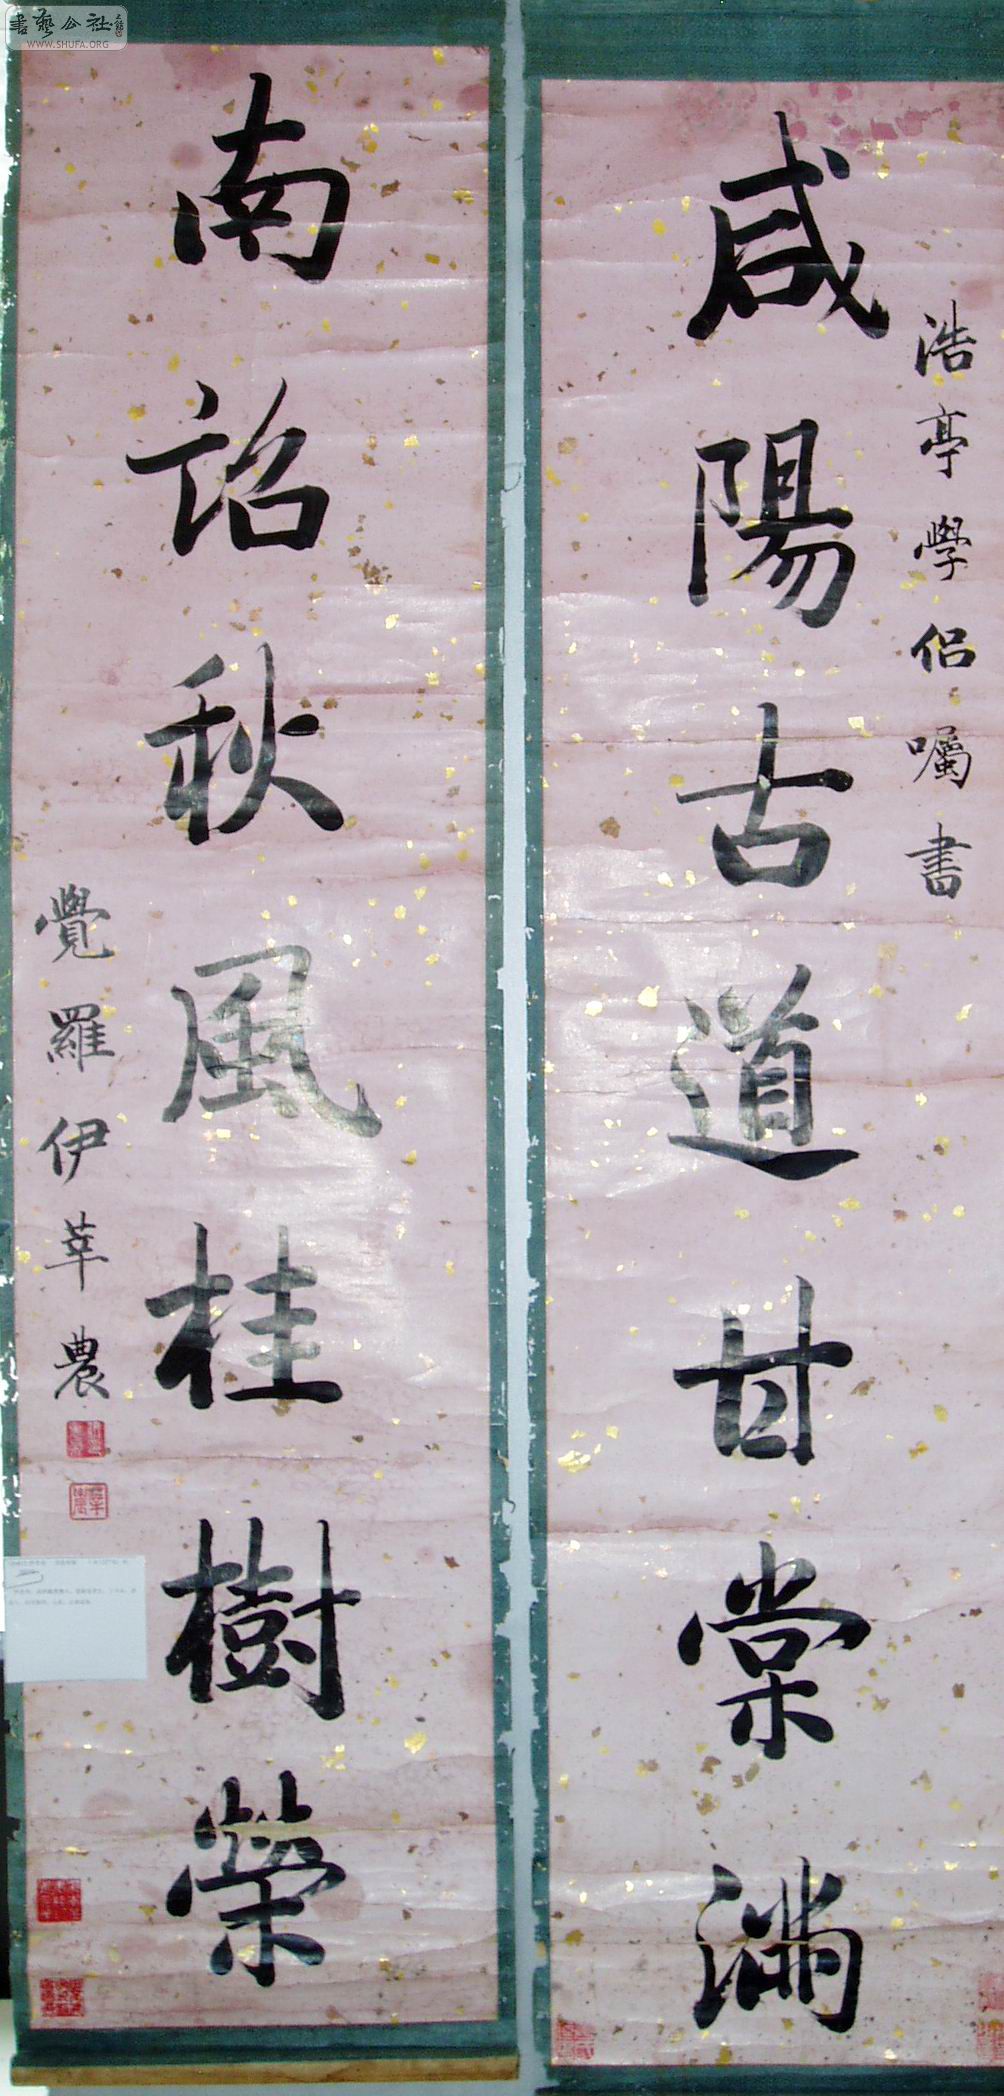 浩亭學侶囑書
咸陽古道甘棠滿
南詔秋風桂樹榮
覺羅伊莘農
書藝公社
WWW.SHUFA.ORG